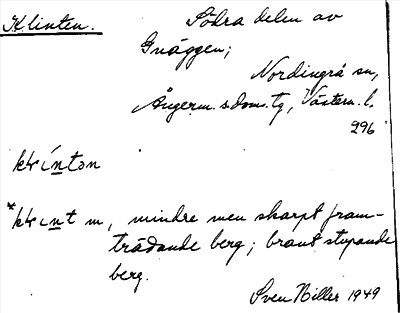 Klinten.
Södra delen av
Gnäggen;
Nordingrå sn,
Ångerm. s. doms. tg, Västern. l.
296
klíntən
*klint m, mindre men skarpt fram-
trädande berg; brant stupande
berg.
Sven Biller 1949